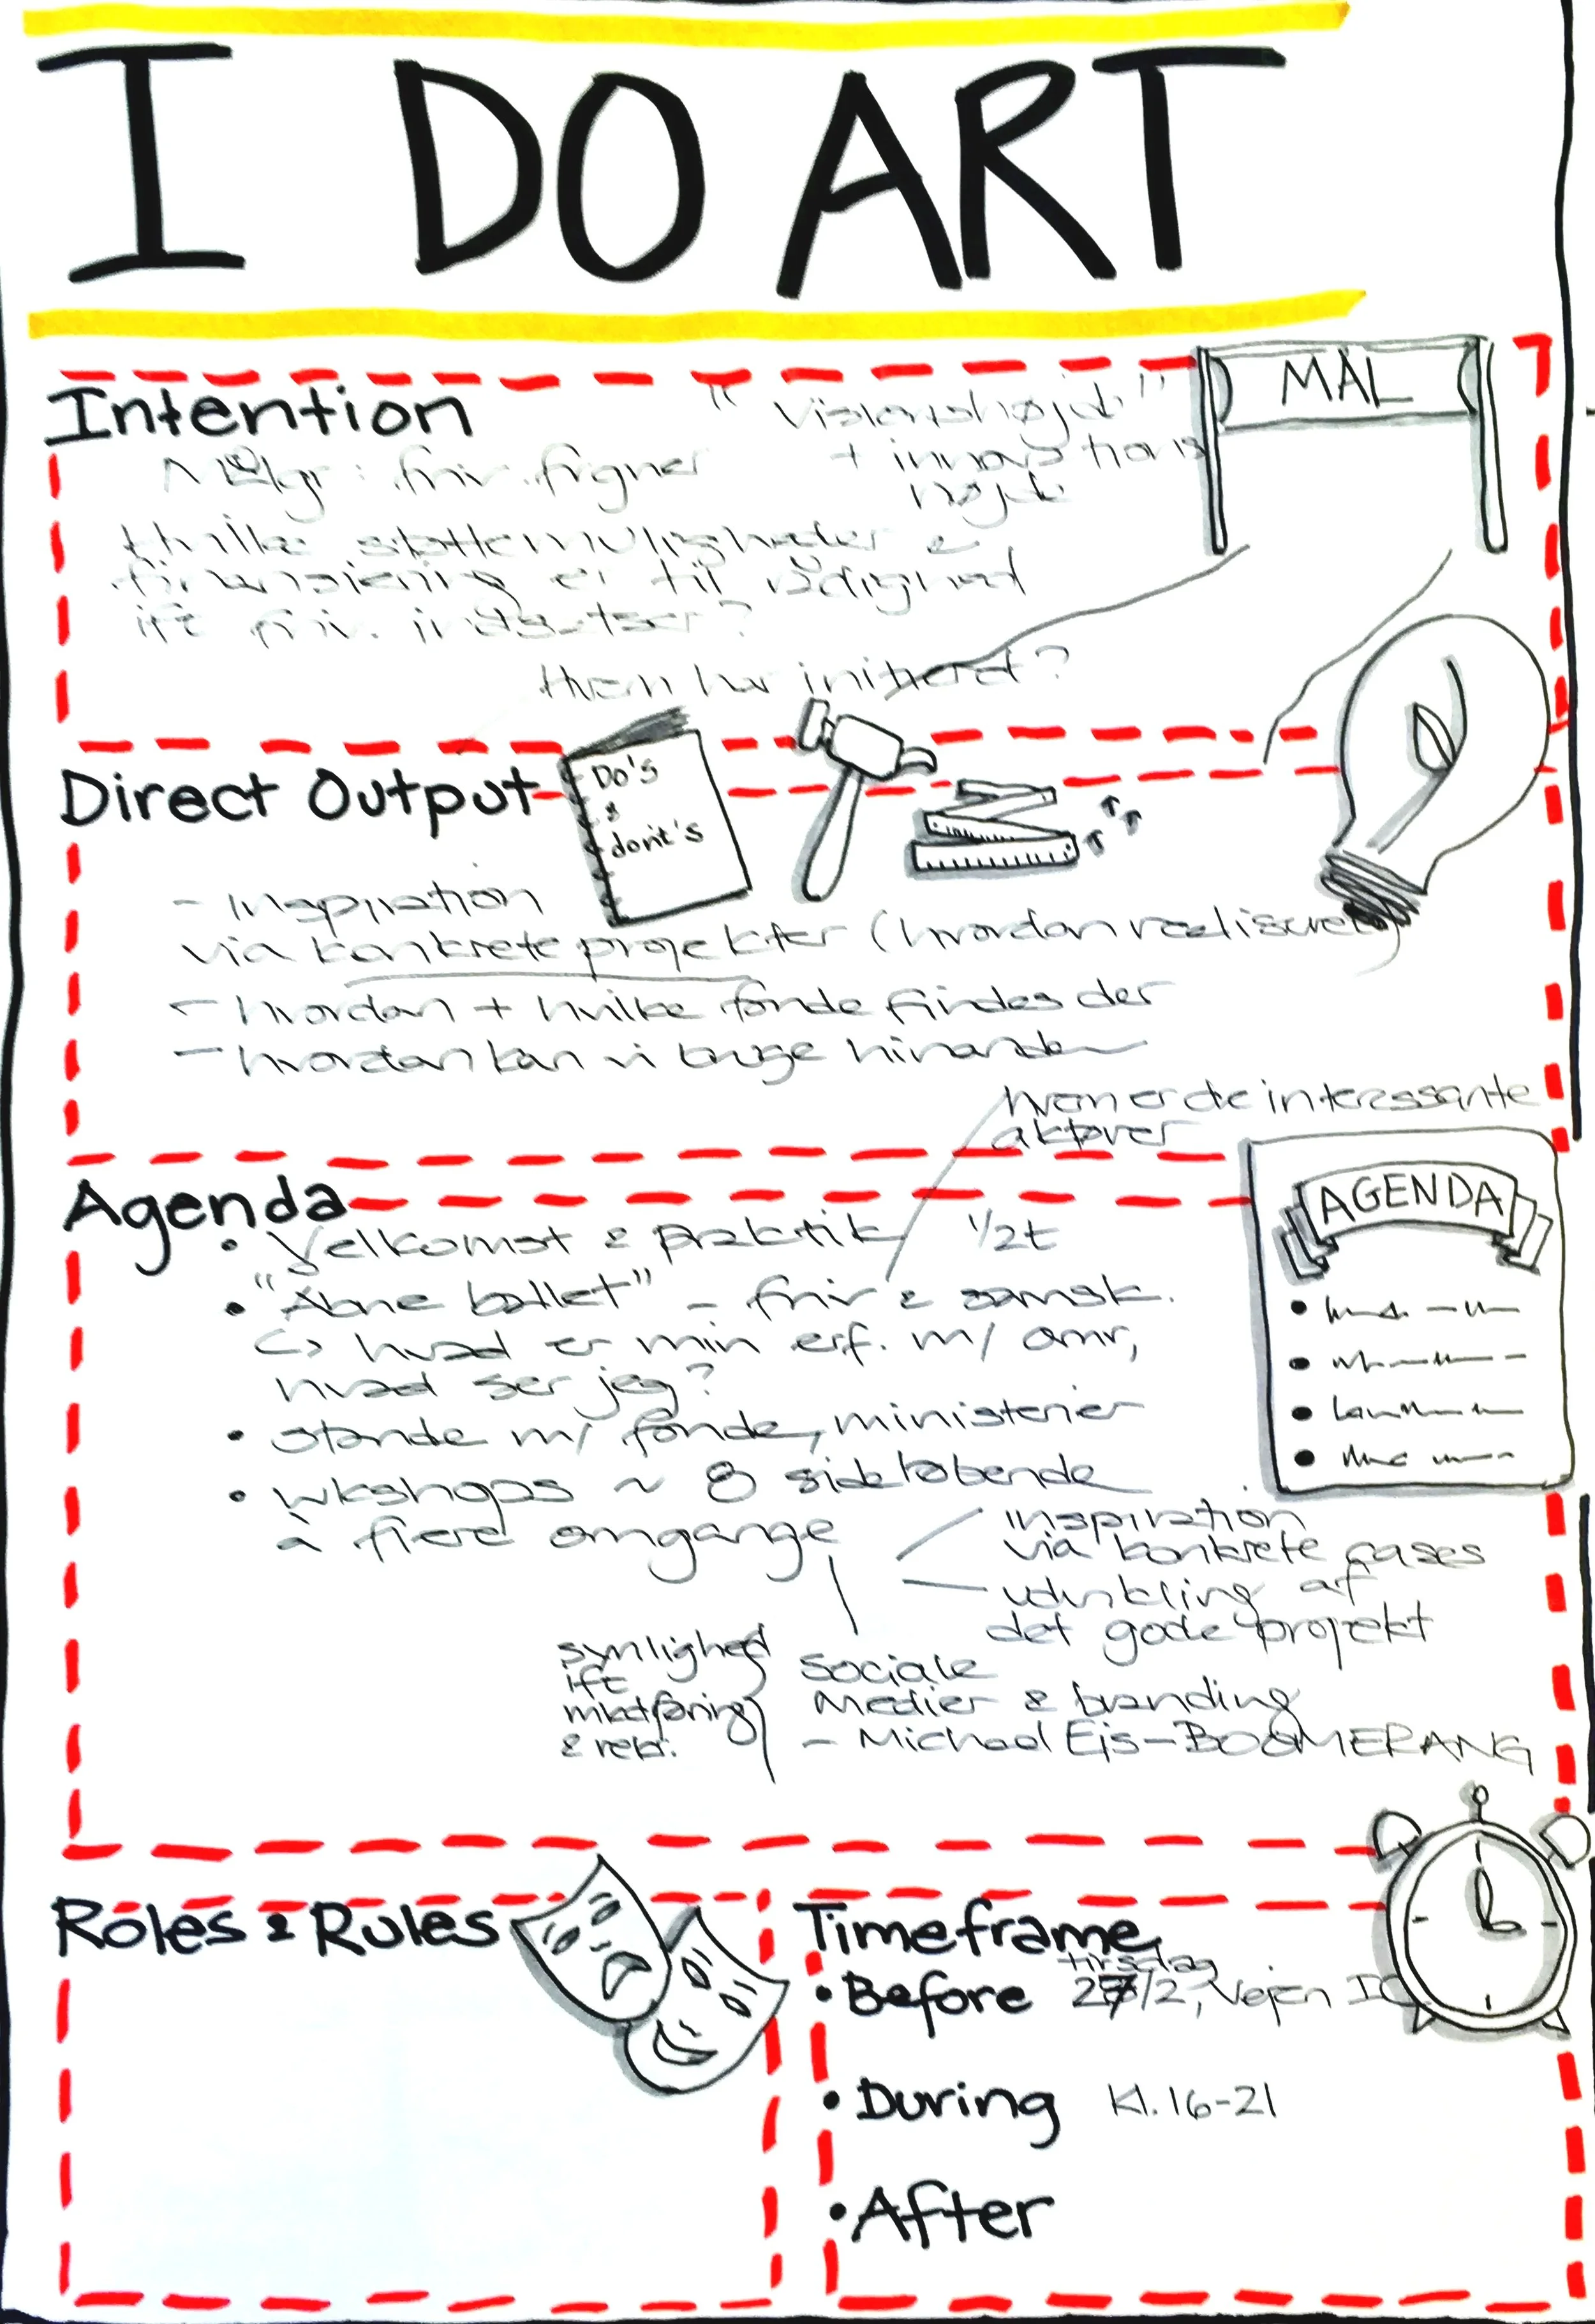 I DO ART
Intention
MÅL
"Visionshøjde"
+ innovations
højde
Målgr: friv. .
hvilke støttemuligheder &
finansiering er til rådighed
ift friv. indsatser?
Hvem har initieret?
Direct Output
Do's
&
dont's
- Inspiration
via konkrete projekter (hvordan realiseret)
- hvordan + hvilke fonde findes der
- hvordan kan vi bruge hinanden
hvem er de interessante
aktører
Agenda
AGENDA
• Velkomst & praktik 1/2t
• "Åbne ballet" - friv & samsk.
↳ hvad er min erf. m/ omr,
hvad ser jeg?
• stande m/ fonde, ministerier
• wkshops ~ 8 sideløbende
à flere omgange
inspiration
via konkrete cases
udvikling af
det gode projekt
synlighed
ift
mkdtføring
& rekr.
Sociale
Medier & branding
- Michael Ejs - BOOMERANG
Roles & Rules
Timeframe
tirsdag
• Before /2, Vejen IC
• During Kl. 16-21
• After